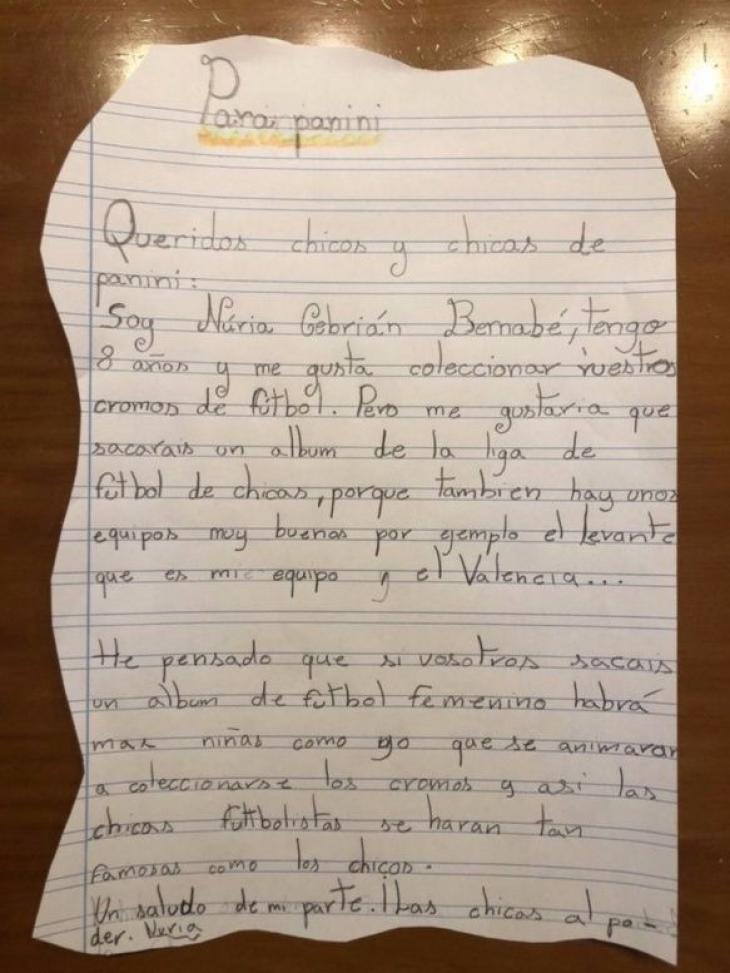 Para panini
Queridos chicos y chicas de
panini:
Soy Núria Cebrián Bernabé, tengo
8 años y me gusta coleccionar vuestros
cromos de fútbol. Pero me gustaria que
sacarais un album de la liga de
futbol de chicas, porque tambien hay unos
equipos muy buenos por ejemplo el levante
que es mi equipo y el Valencia...
He pensado que si vosotros sacais
un album de futbol femenino habrá
mas niñas como yo que se animaran
a coleccionarse los cromos y asi las
chicas futbolistas se haran tan
famosas como los chicos.
Un saludo de mi parte. ¡Las chicas al po-
der. Nuria